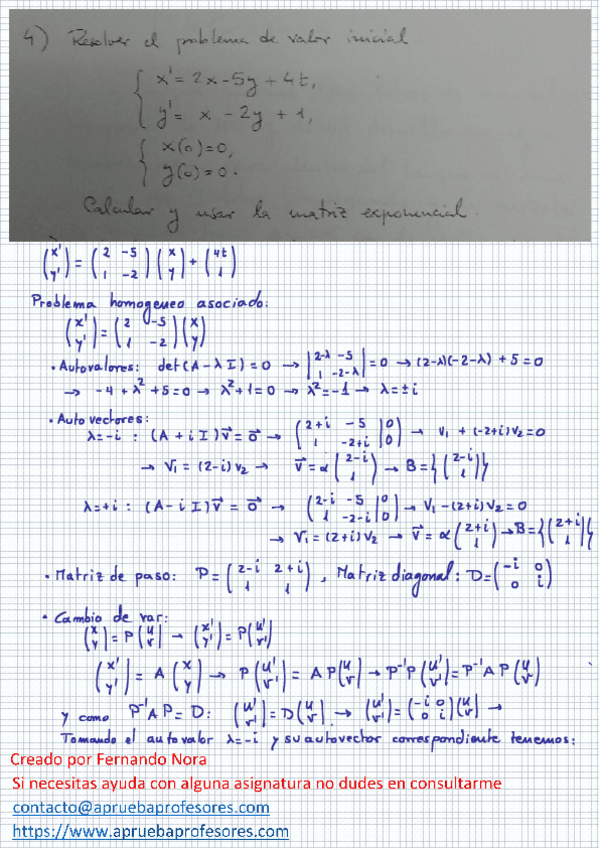 4) Resolver el problema de valor inicial
{ x' = 2x - 5y + 4t,
y' = x - 2y + 1,
{ x(0) = 0,
y(0) = 0.
Calcular y usar la matriz exponencial.
(x' y') = (2 -5 / 1 -2) (x y) + (4t 1)
Problema homogeneo asociado:
(x' y') = (2 -5 / 1 -2) (x y)
• Autovalores: det(A - λI) = 0 → |2-λ -5 / 1 -2-λ| = 0 → (2-λ)(-2-λ) + 5 = 0
→ -4 + λ² + 5 = 0 → λ² + 1 = 0 → λ² = -1 → λ = ± i
• Autovectores:
λ = -i : (A + i I) v⃗ = 0⃗ → (2+i -5 | 0 / 1 -2+i | 0) → v₁ + (-2+i) v₂ = 0
→ v₁ = (2-i) v₂ → v⃗ = α (2-i / 1) → B = {(2-i / 1)}
λ = +i : (A - i I) v⃗ = 0⃗ → (2-i -5 | 0 / 1 -2-i | 0) → v₁ - (2+i) v₂ = 0
→ v₁ = (2+i) v₂ → v⃗ = α (2+i / 1) → B = {(2+i / 1)}
• Matriz de paso: P = (2-i 2+i / 1 1) , Matriz diagonal: D = (-i 0 / 0 i)
• Cambio de var:
(x y) = P (u v) → (x' y') = P (u' v')
(x' y') = A (x y) → P (u' v') = A P (u v) → P⁻¹P (u' v') = P⁻¹ A P (u v)
y como P⁻¹ A P = D: (u' v') = D (u v) → (u' v') = (-i 0 / 0 i) (u v) →
Tomando el autovalor λ = -i y su autovector correspondiente tenemos:
Creado por Fernando Nora
Si necesitas ayuda con alguna asignatura no dudes en consultarme
contacto@apruebaprofesores.com
https://www.apruebaprofesores.com